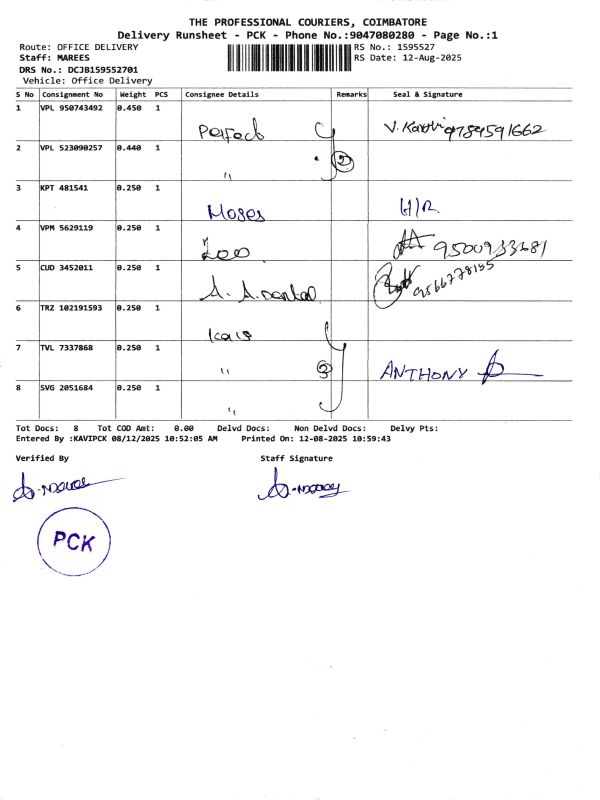 THE PROFESSIONAL COURIERS, COIMBATORE
Delivery Runsheet - PCK - Phone No.:9047080280 - Page No.:1
Route: OFFICE DELIVERY RS No.: 1595527
Staff: MAREES RS Date: 12-Aug-2025
DRS No.: DCJB159552701
Vehicle: Office Delivery
S No Consignment No Weight PCS Consignee Details Remarks Seal & Signature
1 VPL 950743492 0.450 1
Perfect 9789591662
2 VPL 523090257 0.440 1
② 
"
3 KPT 481541 0.250 1
Moses H/R.
4 VPM 5629119 0.250 1
Zoo
5 CUD 3452011 0.250 1
A. A. Dental
6 TRZ 102191593 0.250 1
7 TVL 7337868 0.250 1
" ③ ANTHONY
8 SVG 2051684 0.250 1
"
Tot Docs: 8 Tot COD Amt: 0.00 Delvd Docs: Non Delvd Docs: Delvy Pts:
Entered By :KAVIPCK 08/12/2025 10:52:05 AM Printed On: 12-08-2025 10:59:43
Verified By Staff Signature
PCK